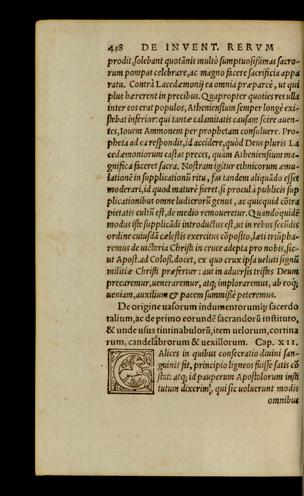 458 DE INVENT. RERVM
prodit, solebant quotānis multò sumptuosissimas sacro-
rum pompas celebrare, ac magno facere sacrificia appa
ratu. Contrà Lacedæmonij ea omnia præparcè, ut qui
plus hærerent in precibus. Quapropter quoties res ulla
inter eos erat populos, Atheniensium semper longè exi-
stebat inferior: qui tantæ calamitatis causam scire auen-
tes, Iouem Ammonem per prophetam consuluere. Pro-
pheta ad ea respondit, id accidere, quòd Deus pluris La
cedæmoniorum castas preces, quàm Atheniensium ma-
gnifica faceret sacra. Nostram igitur ethnicorum æmu-
lationē in supplicationū ritu, fas tandem aliquādo esset
moderari, id quod maturè fieret, si procul à publicis sup
plicationibus omne ludicrorū genus, ac quicquid cōtra
pietatis cultū est, de medio remoueretur. Quandoquidē
modus iste supplicādi introductus est, ut in rebus secūdis
ordine cuiusdā cælestis exercitus cōposito, læti triūpha-
remus de uictoria Christi in cruce adepta pro nobis, sic-
ut Apost. ad Coloss. docet, ex quo crux ipsa ueluti signū
militiæ Christi præfertur: aut in aduersis tristes Deum
precaremur, ueneraremur, atq; imploraremus, ab eoq;
ueniam, auxilium & pacem summisse peteremus.
De origine uasorum indumentorumq; sacerdo
talium, ac de primo eorundē sacrandorū instituto,
& unde usus tintinabulorū, item uelorum, cortina
rum, candelabrorum & uexillorum. Cap. XII.
CAlices in quibus consecratio diuini san-
guinis fit, principio ligneos fuisse satis cō
stat: atq; id pauperum Apostolorum insti
tutum dixerim, qui sic uoluerunt modis
omnibus